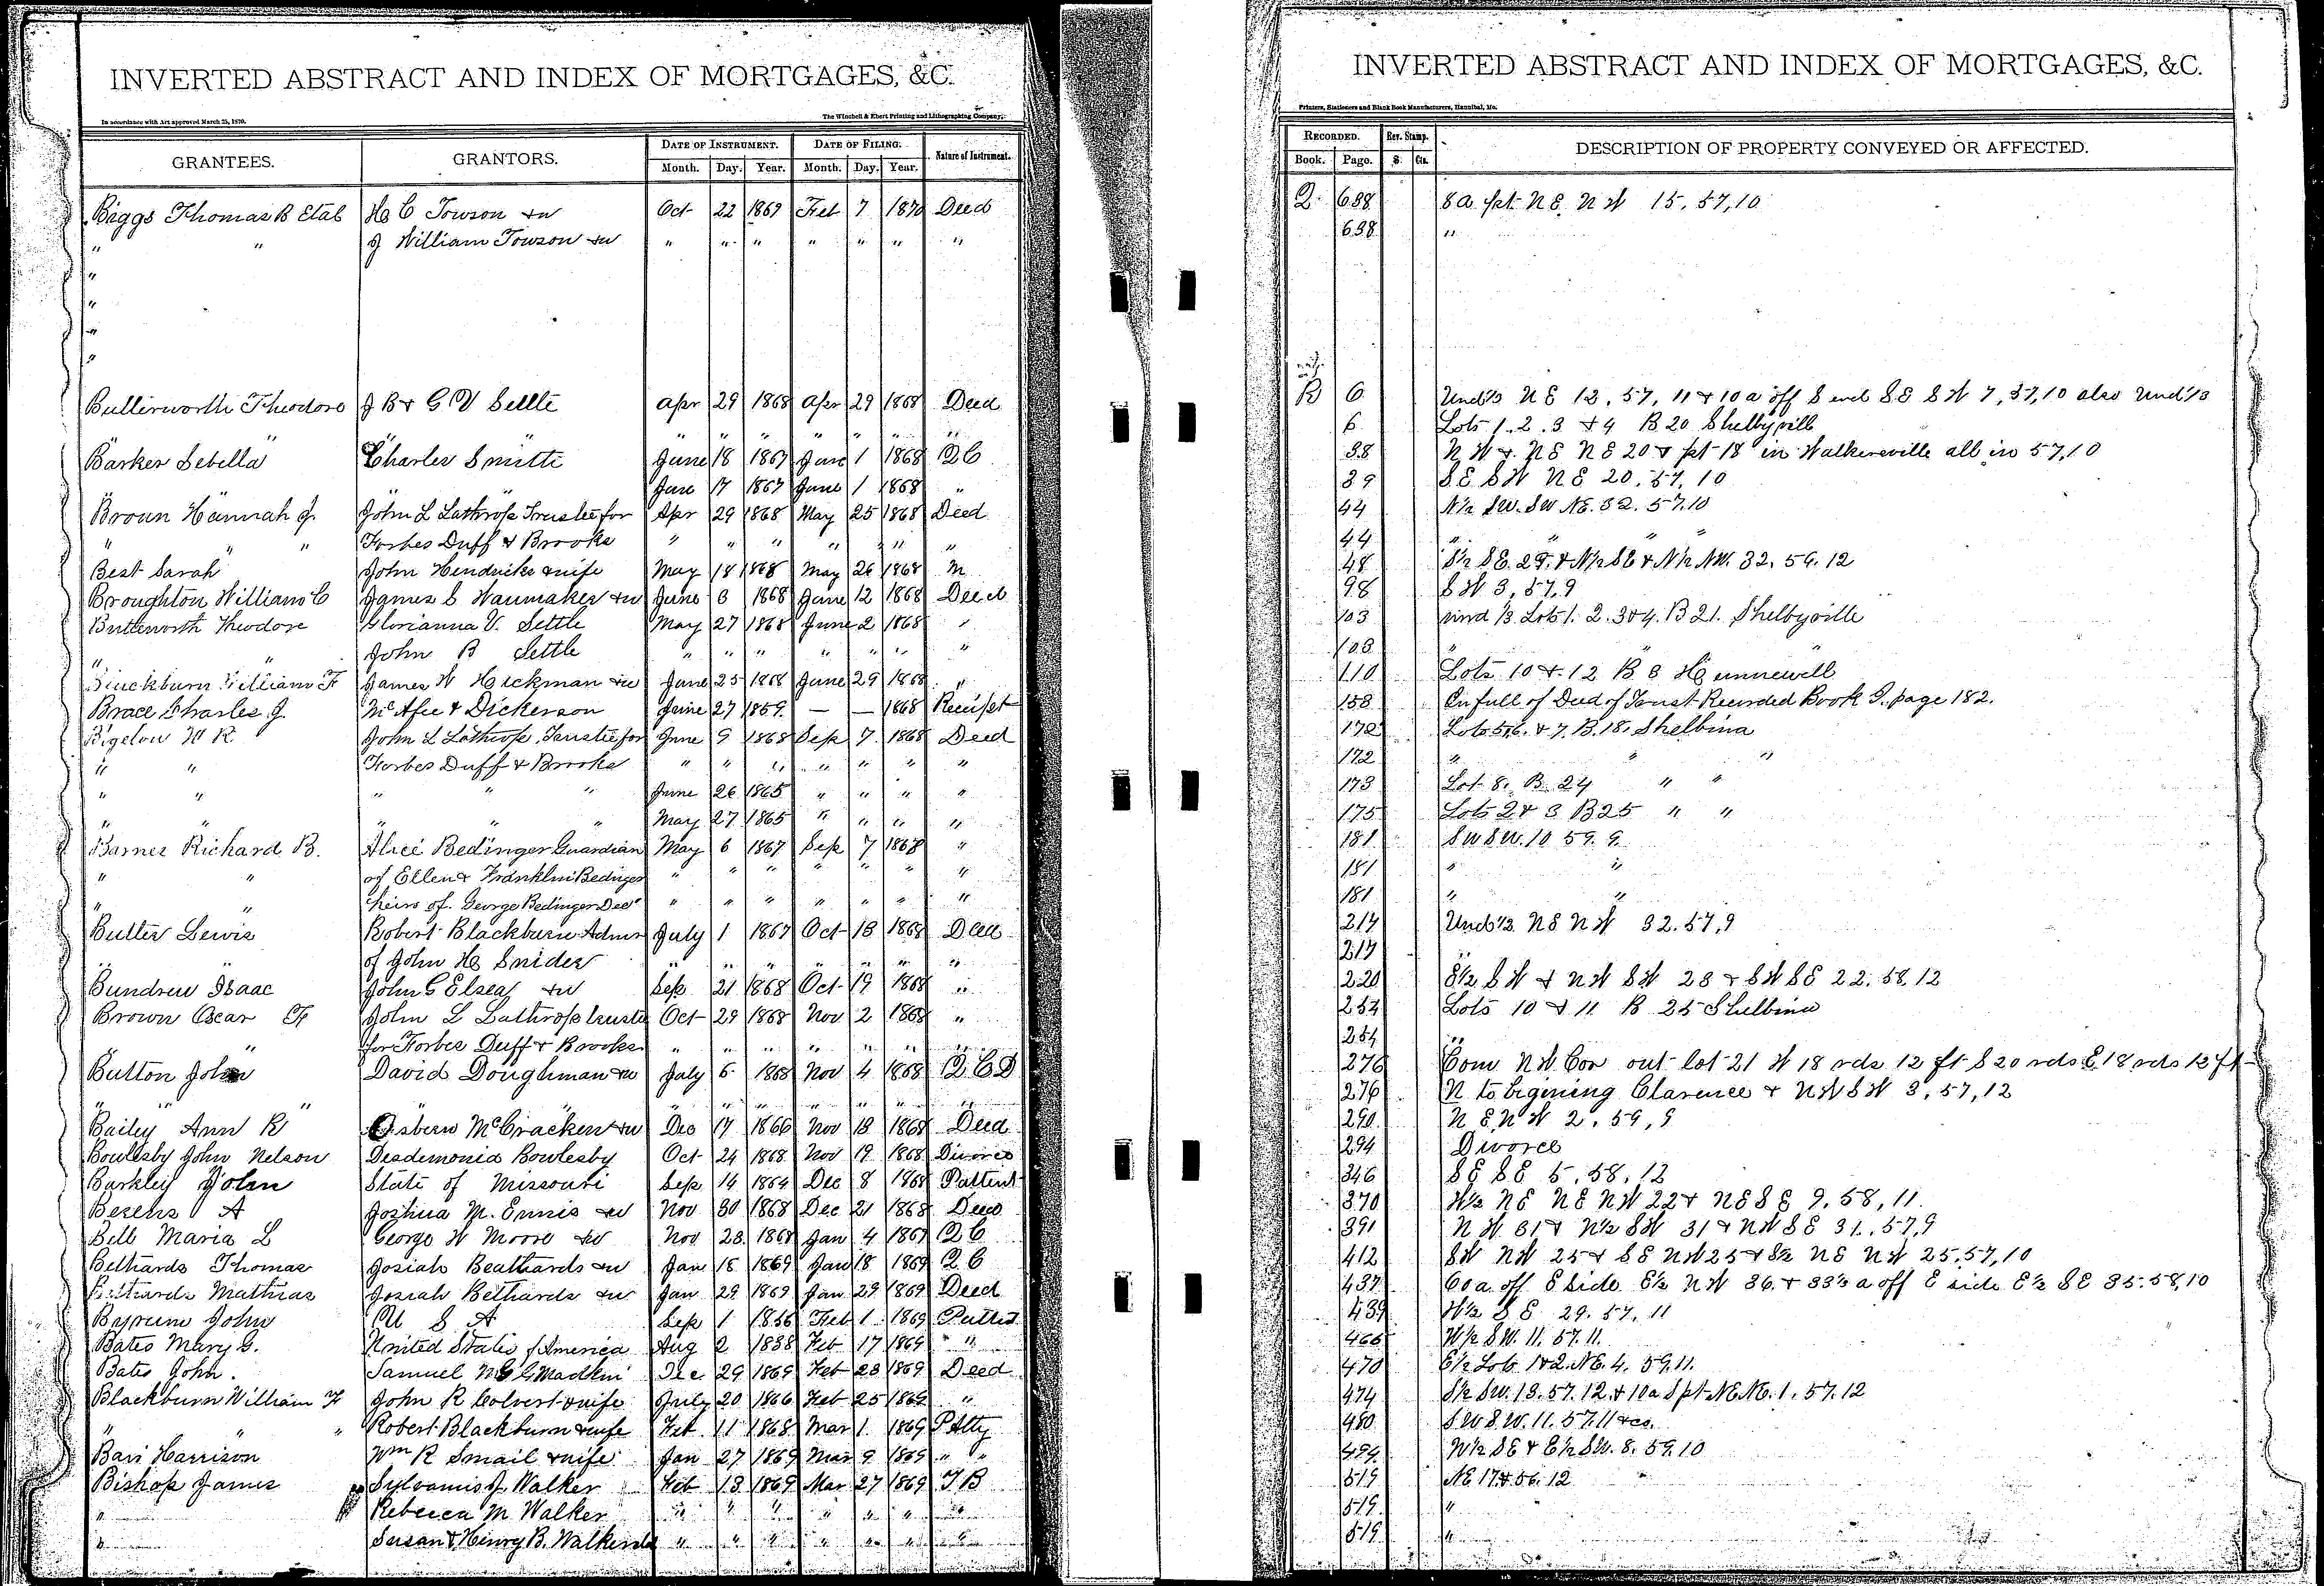 INVERTED ABSTRACT AND INDEX OF MORTGAGES, &C.
In accordance with Act approved March 25, 1870.
The Winchell & Ebert Printing and Lithographing Company,
GRANTEES. GRANTORS. DATE OF INSTRUMENT. DATE OF FILING. Nature of Instrument.
Month. Day. Year. Month. Day. Year.
Biggs Thomas B Etal H C Towson &w Oct 22 1869 Feb 7 1870 Deed
" " J William Towson &w " " " " " " "
"
"
"
"
Butterworth Theodore J B & G V Settle Apr 29 1868 Apr 29 1868 Deed
" " " " " " " " "
Barker Sebella Charles Smith June 18 1867 June 1 1868 QC
" June 17 1867 June 1 1868 "
Broun Hannah J. John L Lathrop Trustee for Apr 29 1868 May 25 1868 Deed
" " " Forbes Duff & Brooks " " " " " " "
Best Sarah John Hendricks & wife May 18 1868 May 26 1868 M
Broughton William C James C Wanmaker &w June 6 1868 June 12 1868 Deed
Butterworth Theodore Glorianna V. Settle May 27 1868 June 2 1868 "
" " John B Settle " " " " " " "
William F James W Hickman &w June 25 1868 June 29 1868 "
Brace Charles J. McAfee & Dickerson June 27 1859 — — 1868 Receipt
Bigelow W R John L Lathrop, Trustee for June 9 1868 Sep 7 1868 Deed
" " Forbes Duff & Brooks " " " " " " "
" " " " " June 26 1865 " " " "
" " " " " May 27 1865 " " " "
Barnes Richard B. Alice Bedinger Guardian May 6 1867 Sep 7 1868 "
" " of Ellen & Franklin Bedinger " " " " " " "
" " heirs of George Bedinger Decd " " " " " " "
Butler Lewis Robert Blackburn Admr July 1 1867 Oct 13 1868 Deed
of John H Snider " " " " " " "
Bundren Isaac John G Elsea &w Sep 21 1868 Oct 19 1868 "
Brown Oscar F John L Lathrop trustee Oct 29 1868 Nov 2 1868 "
" for Forbes Duff & Brooks " " " " " " "
Button John David Doughman &w July 6 1868 Nov 4 1868 QCD
" " " " " " " " "
Bailey Ann R Osbern McCracken &w Dec 17 1866 Nov 13 1868 Deed
Bowlesby John Nelson Desdemonia Bowlesby Oct 24 1868 Nov 19 1868 Divorce
Barkley John State of Missouri Sep 14 1864 Dec 8 1868 Pattent
A Joshua M. Ennis &w Nov 30 1868 Dec 21 1868 Deed
Bell Maria L George W Moore &w Nov 23 1868 Jan 4 1869 QC
Bethards Thomas Josiah Beathards &w Jan 18 1869 Jan 18 1869 QC
Bethards Mathias Josiah Bethards &w Jan 29 1869 Jan 29 1869 Deed
Byrum John U S A Sep 1 1856 Feb 1 1869
Bates Mary G. United States of America Aug 2 1838 Feb 17 1869 " "
Bates John. Samuel Dec 29 1869 Feb 23 1869 Deed
Blackburn William F John R Colvert & wife July 20 1866 Feb 25 1869 "
" " " Robert Blackburn & wife Feb 11 1868 Mar 1 1869 P Atty
Harrison Wm R Smail & wife Jan 27 1869 Mar 9 1869 " "
Bishop James Sylvanus J. Walker Feb 13 1869 Mar 27 1869 T B
" Rebecca M Walker " " " " " " "
" Susan & Henry B. " " " " " " "
INVERTED ABSTRACT AND INDEX OF MORTGAGES, &C.
Printers, Stationers and Blank Book Manufacturers, Hannibal, Mo.
RECORDED. Rev. Stamp. DESCRIPTION OF PROPERTY CONVEYED OR AFFECTED.
Book. Page. $. Cts.
Q. 688 8 a pt N E, N W 15, 57, 10
688 "
R 6 Und 1/3 N E 12, 57, 11 & 10 a off S end S E S W 7, 57, 10 also Und 1/3
6 Lots 1. 2. 3 & 4 B 20 Shelbyvill
38 N W & N E N E 20 & pt 18 in Walkersville all in 57, 10
39 S E S W N E 20, 57, 10
44 N½ SW. SW NE. 32. 57. 10
44 " "
48 S½ SE. 29. & N½ SE & N½ NW. 32. 56. 12
98 S W 3, 57, 9
103 und 1/3 Lots 1. 2. 3 & 4. B 21. Shelbyville
103 "
110 Lots 10 & 12 B 8 Hunnewell
158 In full of Deed of Trust Recorded Book I. page 182.
172 Lots 5, 6. & 7. B. 18. Shelbina
172 " " "
173 Lot 8. B. 24 " "
175 Lots 2 & 3 B 25 " "
181 SW SW. 10 59. 9.
181 " "
181 " "
217 Und 1/2 N E N W 32. 57, 9
217 "
220 E½ S W & N W S W 23 & S W S E 22. 58. 12
254 Lots 10 & 11 B 25 Shelbina
254 "
276 Com N W Cor out lot 21 W 18 rds 12 ft S 20 rds E 18 rds 12 ft
276 N to begining Clarence & N W S W 3, 57, 12
290 N E, N W 2, 59, 9
294 Divorce
346 S E S E 5, 58, 12
370 W½ N E N E N W 22 & N E S E 9, 58, 11
391 N W 31 & N½ S W 31 & N W S E 31, 57, 9
412 S W N W 25 & S E N W 25 & S½ N E N W 25. 57, 10
437 60 a off E side E½ N W 36. & 33½ a off E side E½ S E 35. 58, 10
439 W½ S E 29. 57. 11
466 W½ SW. 11. 57. 11.
470 E½ Lots 1&2. NE. 4. 59. 11.
474 S½ SW. 13. 57. 12. & 10a S pt NE NE. 1. 57. 12
480 SW S.W. 11. 57. 11 &co.
494 W½ SE & E½ SW. 8. 59. 10
519 NE 17 & 56. 12
519 "
519 "